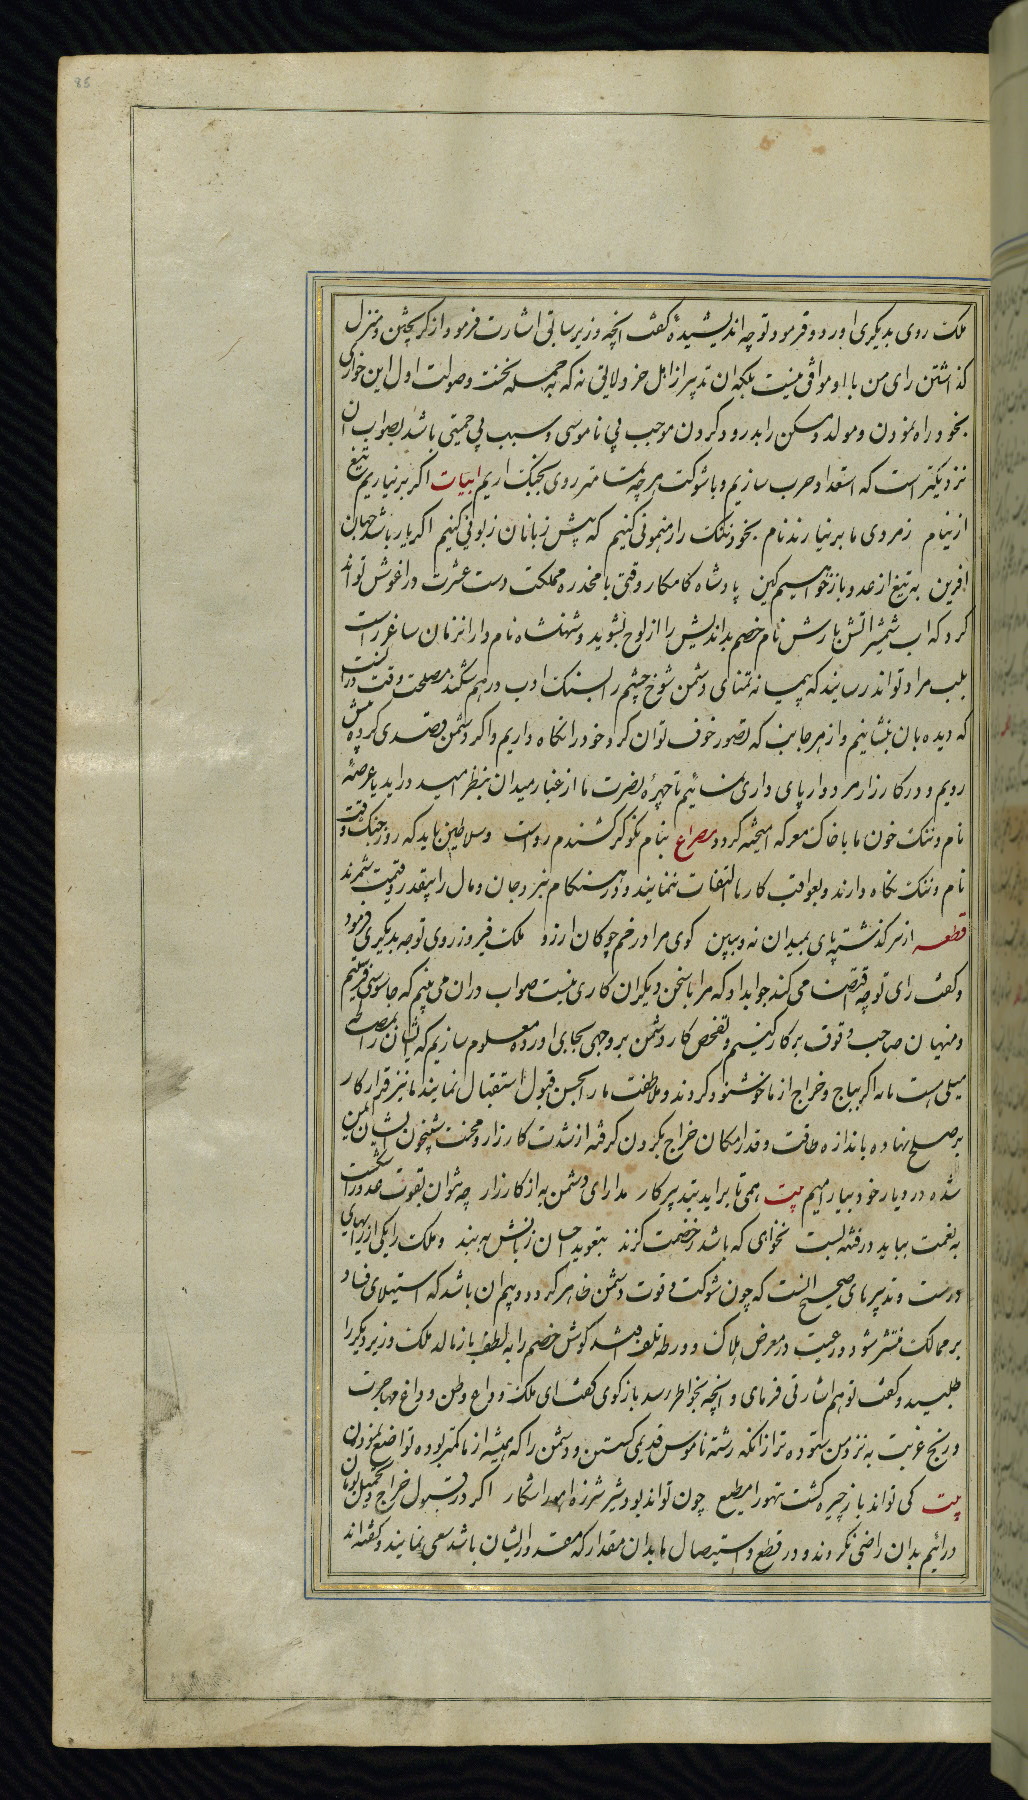 85
ملک روی بدیکری اورد و فرمود تو چه اندیشیدهٔ کفت انچه وزیر سابق اشارت فرمود از کریختن و منزل
کذاشتن رای من با او موافق نیست بلکه ان تدبیر از اهل خرد لایق نه که بحملهٔ نخست و صولت اول این خواری
بخود راه نمودن و مولد و مسکن را بدرود کردن موجب بی ناموسی و سبب بی حمیتی باشد بصواب ان
نزدیکتر است که استعداد حرب سازیم و با شوکت هر چه تمامتر روی بجنک اریم ابیات اکر برنیاریم تیغ
از نیام زمردی ما برنیارند نام بخود ننک را رهنمونی کنیم که پیش زبونان زبونی کنیم اکر یار باشد جهان
افرین به تیغ از عدو باز خواهیم کین پادشاه کامکار وقتی با مخدره مملکت دست عشرت در اغوش تواند
کرد که اب شمشیر اتش بارش نام خصم بداندیش را از لوح بشوید و شهنشاه نامدار انزمان ساغر راحت
بلب مراد تواند رسانید که پیمانه تمنای دشمن شوخ چشم را بسنک ادب درهم شکند مصلحت وقت در انست
که دیده بان بنشانیم و از هر جانب که تصور خوف توان کرد خود را نکاه داریم و اکر دشمن قصدی کرده پیش
رویم و در کارزار مردوار پای داری نمائیم تا چهرهٔ نصرت ما از غبار میدان بنظر امید دراید یا عرصهٔ
نام و ننک خون ما با خاک معرکه امیخته کردد مصراع بنام نکو کر کشندم رواست و سلاطین باید که روز جنک و وقت
نام و ننک نکاه دارند و بعواقب کارها التفات ننمایند و در هنکام نبرد جان و مال را بیقدر و قیمت شمرند
قطعه از سر کذشته پای بمیدان نه و ببین کوی مراد در خم چوکان ارزو ملک فیروز روی توجه بدیکری فرمود
و کفت رای تو چه اقتضا می کند جواب داد که مرا با سخن دیکران کاری نیست صواب دران می بینم که جاسوسی فرستیم
و منهیان صاحب وقوف بر کار کنیم و تفحص کار دشمن بر وجهی بجای اورده معلوم سازیم که ایشان را بمصالحه
میلی هست یا نه اکر بباج و خراج از ما خوشنود کردند و ملاطفت ما را بحسن قبول استقبال نمایند ما نیز قرار کار
بر صلح نهاده باندازه طاقت و قدر امکان خراج بکردن کرفته از شدت کارزار و محنت شبیخون ایشان ایمن
شده در دیار خود بیارامیم بیت همی تا براید بتدبیر کار مدارای دشمن به از کارزار چو نتوان بقوت عدو را شکست
به نعمت بباید در فتنه بست نخواهی که باشد ز خصمت کزند بتعویذ احسان زبانش به بند و ملک را یکی از رایهای
درست و تدبیرهای صحیح انست که چون شوکت و قوت دشمن ظاهر کردد و بیم ان باشد که استیلای فساد
بر ممالک منتشر شود و رعیت در معرض هلاک و ورطه تلف افتد کوش خصم را به لطف بازمالد ملک وزیر دیکر را
طلبید و کفت تو هم اشارتی فرمای و انچه بخواطر رسد بازکوی کفت ای ملک وداع وطن و داغ مهاجرت
و رنج غربت به نزد من ستوده تر از انکه رشته ناموس قدیمی کسستن و دشمن را که همیشه از ما کمتر بوده تواضع نمودن
بیت کی تواند باز چیره کشت تیهو را مطیع چون تواند بود شیر شرزه اهو را شکار اکر در قبول خراج و تحمیل بر ان
درائیم بدان راضی نکردند و در قطع و استیصال ما بدان مقدار که مقدور ایشان باشد سعی نمایند و کفته اند